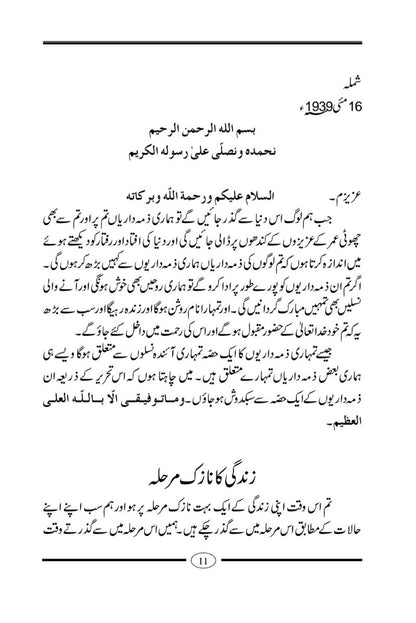 شملہ
16 مئی 1939ء
بسم اللہ الرحمن الرحیم
نحمدہ ونصلّی علیٰ رسولہ الکریم
عزیزم۔ السلام علیکم ورحمۃ اللّہ وبرکاتہ
جب ہم لوگ اس دنیا سے گذر جائیں گے تو ہماری ذمہ داریاں تم پر اور تم سے بھی
چھوٹی عمر کے عزیزوں کے کندھوں پر ڈالی جائیں گی اور دنیا کی افتاد اور رفتار کو دیکھتے ہوئے
میں اندازہ کرتا ہوں کہ تم لوگوں کی ذمہ داریاں ہماری ذمہ داریوں سے کہیں بڑھ کر ہوں گی۔
اگر تم ان ذمہ داریوں کو پورے طور پر ادا کرو گے تو ہماری روحیں بھی خوش ہونگی اور آنے والی
نسلیں بھی تمہیں مبارک گردانیں گی۔ اور تمہارا نام روشن ہوگا اور زندہ رہیگا اور سب سے بڑھ
یہ کہ تم خود خدا تعالیٰ کے حضور مقبول ہو گے اور اس کی رحمت میں داخل کئے جاؤ گے۔
جیسے تمہاری ذمہ داریوں کا ایک حصّہ تمہاری آئندہ نسلوں سے متعلق ہوگا ویسے ہی
ہماری بعض ذمہ داریاں تمہارے متعلق ہیں۔ میں چاہتا ہوں کہ اس تحریر کے ذریعہ ان
ذمہ داریوں کے ایک حصّہ سے سبکدوش ہو جاؤں۔ وماتوفیقی الّا باللّٰہ العلی
العظیم۔
زندگی کا نازک مرحلہ
تم اس وقت اپنی زندگی کے ایک بہت نازک مرحلہ پر ہو اور ہم سب اپنے اپنے
حالات کے مطابق اس مرحلہ میں سے گذر چکے ہیں۔ ہمیں اس مرحلہ میں سے گذرتے وقت
11